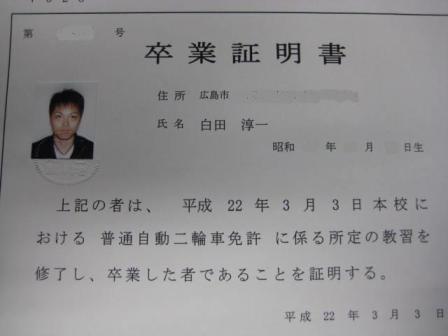 第 号
卒業証明書
住所 広島市
氏名 白田 淳一
昭和 年 月 日生
上記の者は、 平成 22 年 3 月 3 日本校に
おける 普通自動二輪車免許 に係る所定の教習を
修了し、卒業した者であることを証明する。
平成 22 年 3 月 3 日